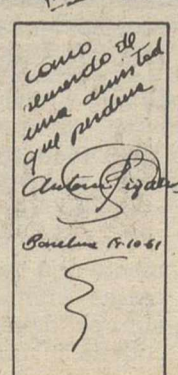 como
recuerdo de
una amistad
que perdura
Antoni
Barcelona 18-10-61